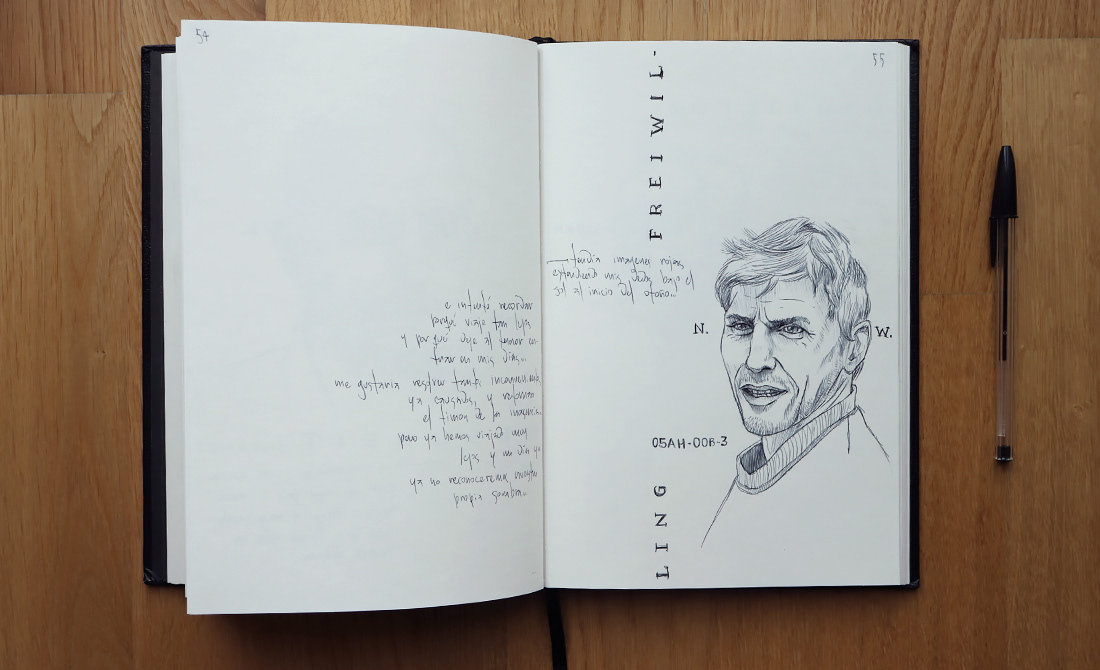 54
e intenté recordar
porqué viajé tan lejos
y por qué dejé al temor en-
trar en mis días...
me gustaría resolver tanto inconveniente
ya causado, y retomar
el timón de la
pero ya hemos viajado muy
lejos y un día ya
ya no reconoceremos nuestra
propia sombra...
55
FREIWIL-
tendía imágenes rojas
extendiendo mis dedos bajo el
sol al inicio del otoño...
N. W.
05AH-00B-3
LING